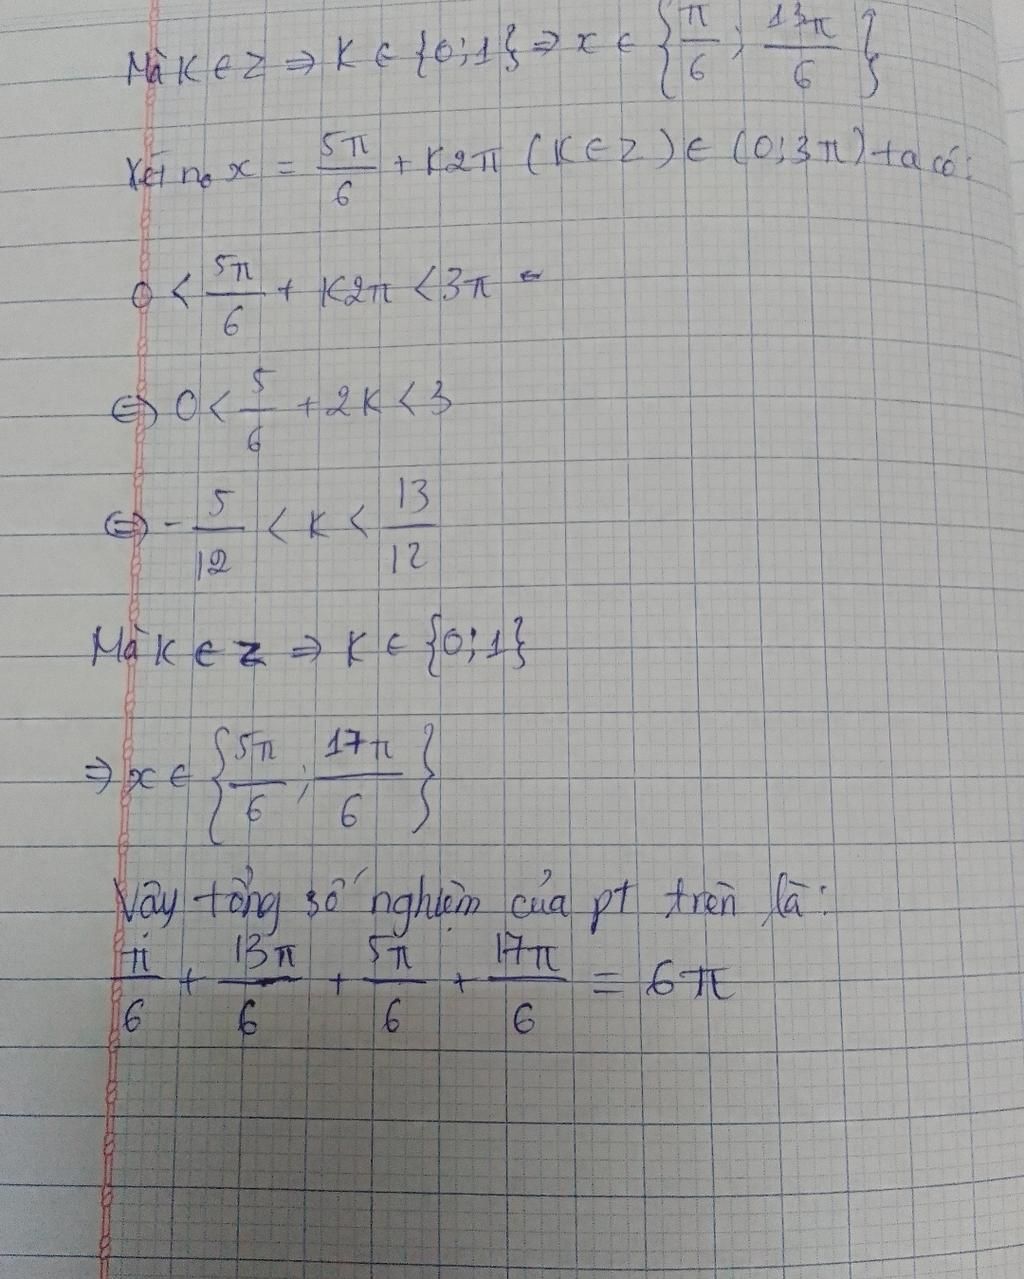 Mà K ∈ Z ⇒ K ∈ {0;1} ⇒ x ∈ {π/6; 13π/6}
Xét n₀ x = 5π/6 + K2π (K ∈ Z) ∈ (0;3π) ta có:
0 < 5π/6 + K2π < 3π
⇔ 0 < 5/6 + 2K < 3
⇔ -5/12 < K < 13/12
Mà K ∈ Z ⇒ K ∈ {0;1}
⇒ x ∈ {5π/6; 17π/6}
Vậy tổng số nghiệm của pt trên là:
π/6 + 13π/6 + 5π/6 + 17π/6 = 6π